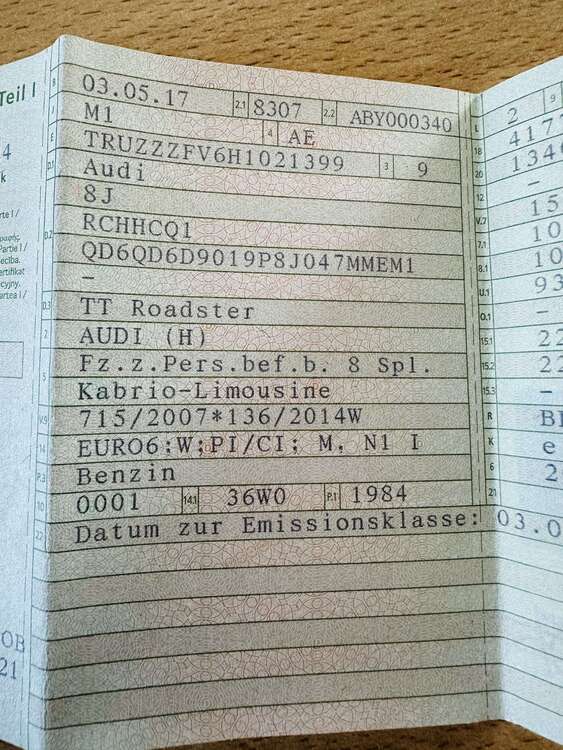 Teil I
4
k
rte I /
Partie I /
ecība.
ertifikat
cyjny.
artea I /
OB
21
B 03.05.17 2.1 8307 2.2 ABY000340
J M1 4 AE
E TRUZZZFV6H1021399 3 9
D.1 Audi
8J
D.2 RCHHCQ1
QD6QD6D9019P8J047MMEM1
–
D.3 TT Roadster
2 AUDI (H)
5 Fz.z.Pers.bef.b. 8 Spl.
Kabrio-Limousine
V.9 715/2007*136/2014W
14 EURO6;W;PI/CI; M, N1 I
P.3 Benzin
10 0001 14.1 36W0 P.1 1984
22 Datum zur Emissionsklasse: 03.0
L 2 9
18 417
20 134
12 –
V.7 15
7.1 10
8.1 10
U.1 93
O.1 –
15.1 22
15.2 22
15.3 –
R
K e
6 2
21